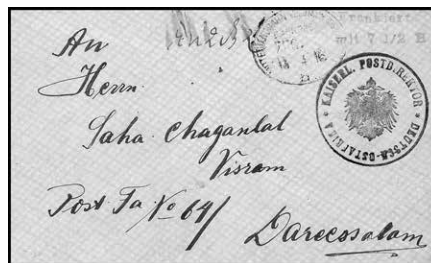 Frankiert
mit 7 1/2 B
An
Herrn
Saha Chaganlal
Visram
Post Fa No 64/
Daressalam
* KAISERL. POSTDIREKTOR * DEUTSCH-OSTAFRIKA